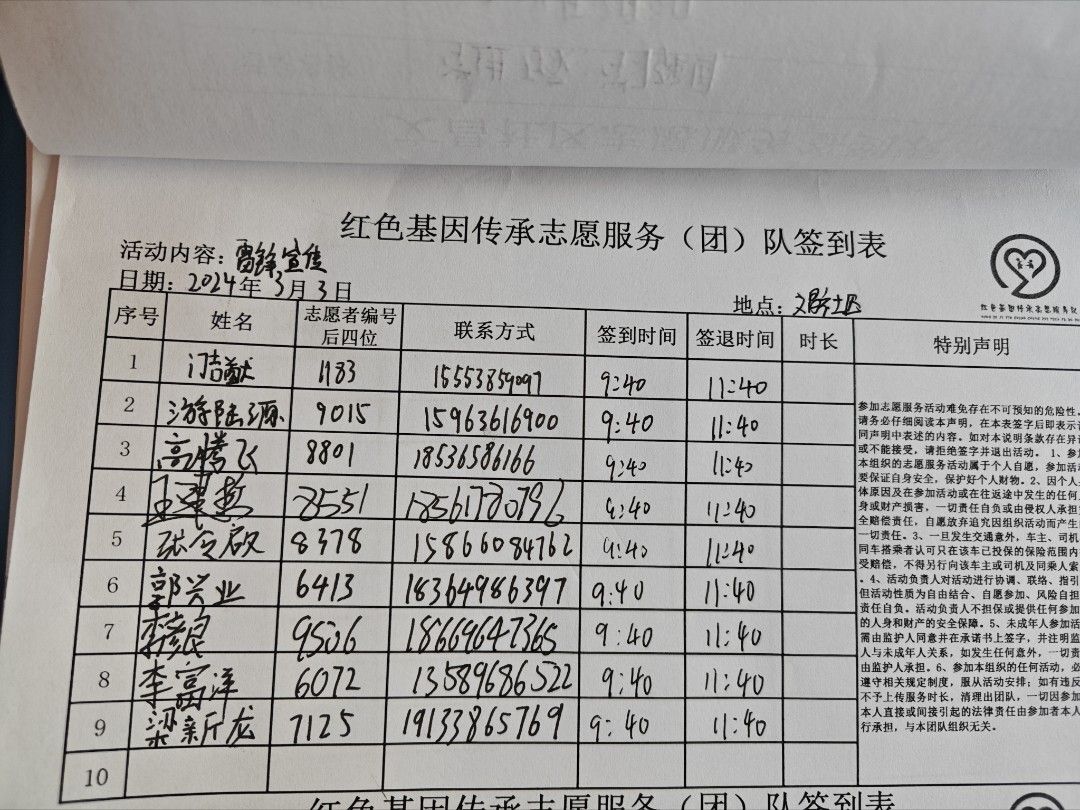 红色基因传承志愿服务（团）队签到表
活动内容：雷锋宣传
日期：2024年3月3日
地点：
序号 姓名 志愿者编号后四位 联系方式 签到时间 签退时间 时长 特别声明
1 1183 15553859097 9:40 11:40
2 游陆源 9015 15963616900 9:40 11:40
3 高腾飞 8801 18536586166 9:40 11:40
4 8551 18561780796 9:40 11:40
5 张令啟 8378 15866084762 9:40 11:40
6 郭兴业 6413 18364986397 9:40 11:40
7 9506 18669647365 9:40 11:40
8 李富洋 6072 13589686522 9:40 11:40
9 梁新龙 7125 19133865769 9:40 11:40
10
参加志愿服务活动难免存在不可预知的危险性。
请务必仔细阅读本声明，在本表签字后即表示
同声明中表述的内容。如对本说明条款存在异
或不能接受，请拒绝签字并退出活动。 1、参
本组织的志愿服务活动属于个人自愿，参加活
要保证自身安全，保护好个人财物。2、因个人
体原因及在参加活动或在往返途中发生的任何
身或财产损害，一切责任自负或由侵权人承担
全赔偿责任，自愿放弃追究因组织活动而产生
一切责任。3、一旦发生交通意外，车主、司机
同车搭乘者认可只在该车已投保的保险范围内
受赔偿，不得另行向该车主或司机及同乘人索
。4、活动负责人对活动进行协调、联络、指引
但活动性质为自由结合、自愿参加、风险自担
责任自负。活动负责人不担保或提供任何参加
的人身和财产的安全保障。5、未成年人参加活
需由监护人同意并在承诺书上签字，并注明监
人与未成年人关系，如发生任何意外，一切责
由监护人承担。6、参加本组织的任何活动，必
遵守相关规定制度，服从活动安排；如有违反
不予上传服务时长，清理出团队，一切因参加
本人直接或间接引起的法律责任由参加者本人
行承担，与本团队组织无关。
红色基因传承志愿服务（团）队签到表